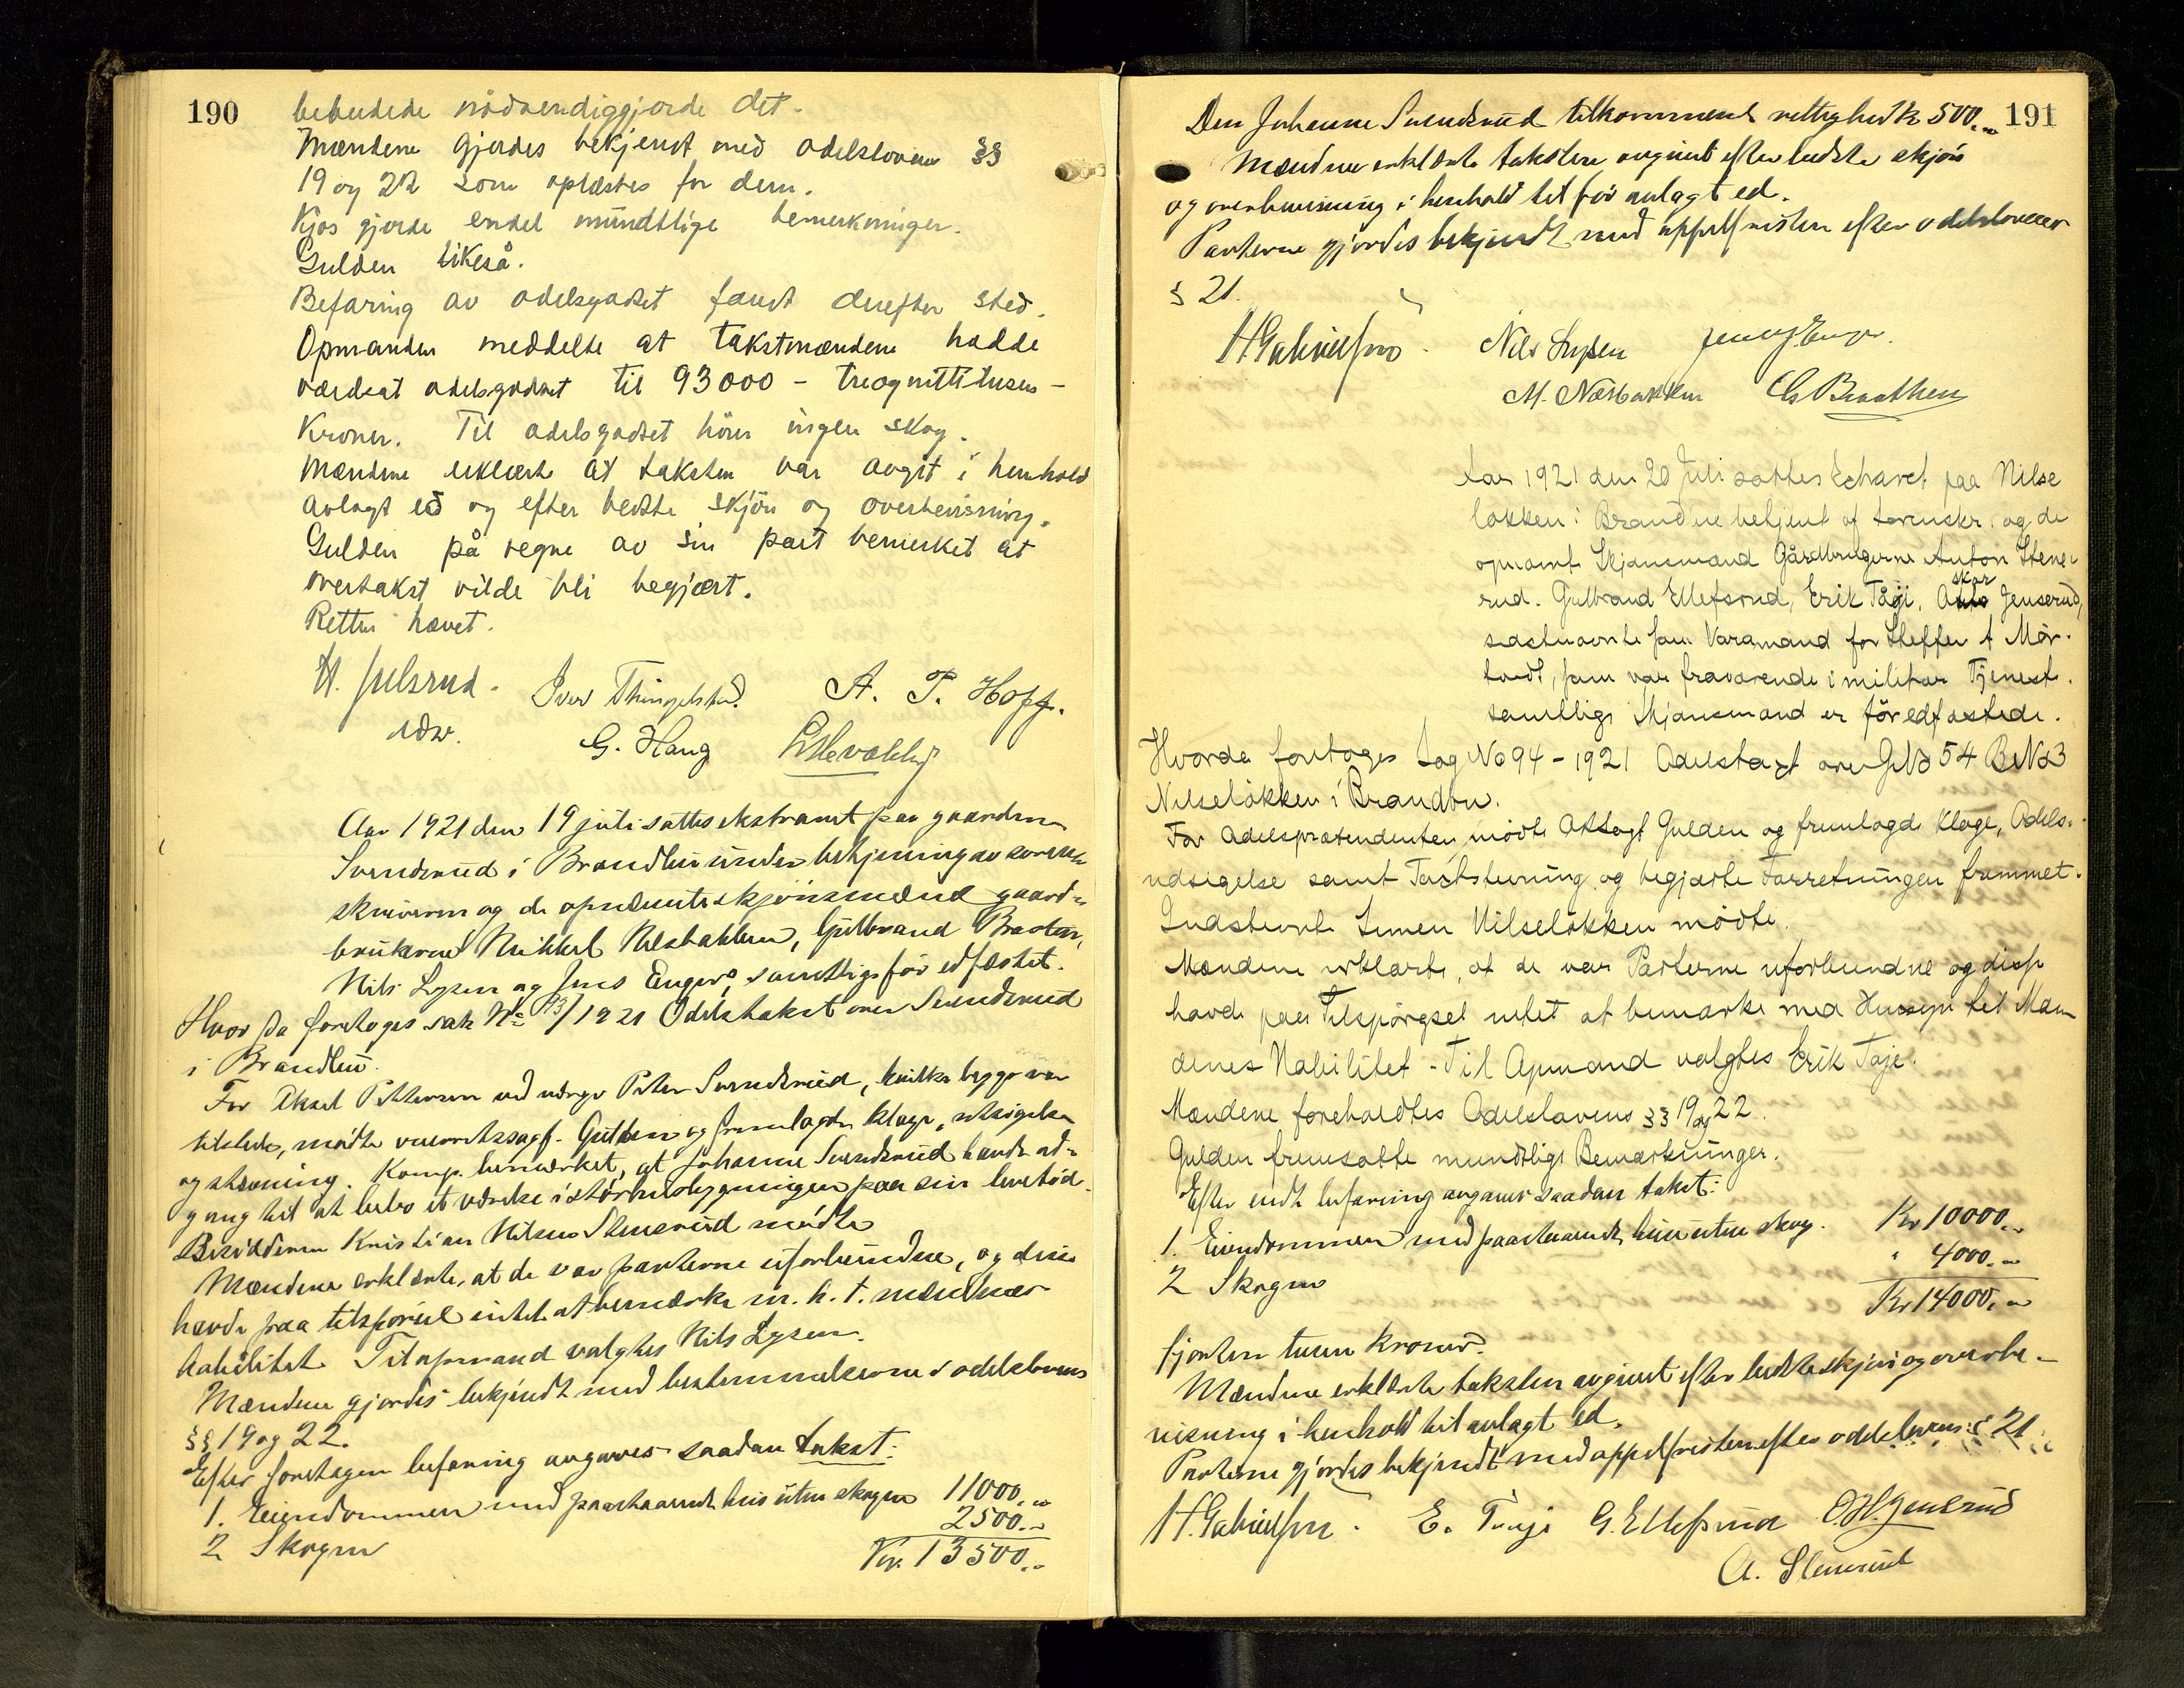 190
bebudede nødvendiggjorde det.
Mændene gjordes bekjent med odelsloven §§
19 og 22 som oplæstes for dem.
Kjos gjorde endel mundtlige bemerkninger.
Gulden likeså.
Befaring av odelsgodset fandt derefter sted.
Opmanden meddelte at takstmændene hadde
værdsat odelsgodset til 93000 - treognittitusen -
Kroner. Til odelsgodset hører ingen skog.
Mændene erklærte at taksten var avgit i henhold
avlagt ed og efter bedste skjøn og overbevisning.
Gulden på vegne av sin part bemerket at
overtakst vilde bli begjært.
Retten hævet.
H. Julsrud. Iver Thingelstad. A. P. Hoff.
edv. G. Haug
Aar 1921 den 19 juli sattes ekstraret paa gaarden
Svendsrud i Brandbu under betjening av soren-
skriveren og de opnævnte skjønsmænd gaard-
brukerne Mikkel Næsbakken, Gulbrand Braaten,
Nils Lysen og Jens Enger, samtlige før edfæstet.
Hvor da foretoges sak No 93/1921 Odelstakst over Svendsrud
i Brandbu.
For Aksel Pettersen ved værge Peter Svendsrud, hvilke begge var
tilstede, møtte overretssagf. Gulden og fremlagde klage, utsigelse
og stevning. Komp. bemærket, at Johanne Svendsrud havde ad-
gang til at bebo et værelse i størhusbygningen paa sin levetid.
Besidderen Kristian Nilsen Stenerud mødte
Mændene erklærte, at de var parterne uforbundne, og disse
havde paa tilspørsel intet at bemærke m. h. t. mændenes
habilitet. Til opmand valgtes Nils Lysen.
Mændene gjordes bekjendt med bestemmelserne i odelslovens
§§ 19 og 22.
Efter foretagen befaring avgaves saadan takst:
1. Eiendommen med paastaaende hus uten skogen 11000.
2 Skogen 2500.
Kr. 13500.
191
Den Johanne Svendsrud tilkommende rettighed Kr 500.
Mændene erklærte taksten avgivet efter bedste skjøn
og overbevisning i henhold til før avlagt ed.
Parterne gjordes bekjendt med appelfristen efter odelsloven
§ 21.
H Gabrielsen. Nils Lysen Jens J Enger.
M. Næsbakken G Braathen
Aar 1921 den 20 Juli sattes Extraret paa Nilse
løkken i Brandbu betjent af sorenskr. og de
opnævnte Skjønsmænd Gårdbrugerne Anton Stene-
rud. Gulbrand Ellefsrud, Erik Tåje, Oskar Jenserud,
sidstnævnte som Varamand for Steffen A Mør-
tvedt, som var fraværende i militær Tjeneste.
samtlige Skjønsmænd er før edfæstede.
Hvorda foretoges Sag No 94 - 1921 Odelstaxt over GNo 54 BrNo 3
Nilseløkken i Brandbu.
For Odelsprætendenten mødte O.r.sagf. Gulden og fremlagde Klage, Odels-
udsigelse samt Taxtstevning og begjærte Forretningen fremmet.
Indstevnte Simen Nilseløkken mødte.
Mændene erklærte, at de var Parterne uforbundne og disse
havde paa Tilspørgsel intet at bemærke med Hensyn til Mæn
denes Habilitet - Til Opmand valgtes Erik Taje.
Mændene foreholdtes Odelslovens §§ 19 og 22.
Gulden fremsatte mundtlige Bemærkninger.
Efter endt befaring avgaves saadan takst:
1. Eiendommen med paastaaende hus uten skog. Kr 10000.
2 Skogen " 4000.
Kr 14000.
fjorten tusen kroner.
Mændene erklærte taksten avgivet efter bedste skjøn og overbe-
visning i henhold til avlagt ed.
Parterne gjordes bekjendt med appelfristen efter odelslovens § 21
H. Gabrielsen. E. Taaje G. Ellefsrud O. H. Jensrud
A. Stenerud